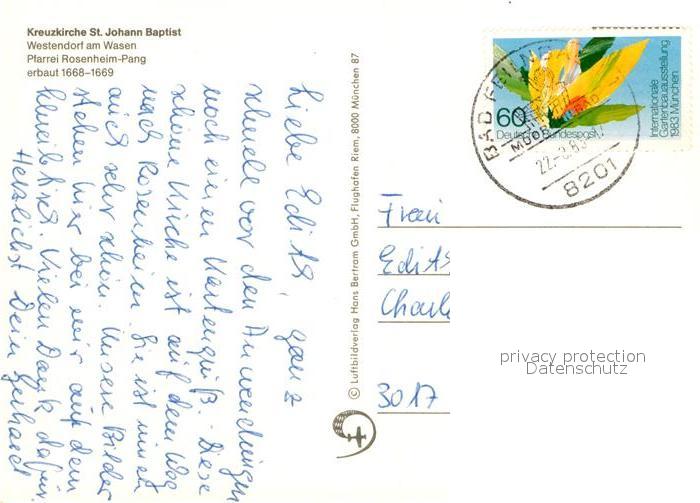 Kreuzkirche St. Johann Baptist
Westendorf am Wasen
Pfarrei Rosenheim-Pang
erbaut 1668–1669
Liebe Edith, ganz
schnell vor den Anwendungen
noch einen Kartengruß. Diese
schöne Kirche ist auf dem Weg
nach Rosenheim. Sie ist innen
auch sehr schön. Unsere Bilder
stehen hier bei mir auf dem
Schreibtisch. Vielen Dank dafür.
Herzlichst Dein Gerhard
© Luftbildverlag Hans Bertram GmbH, Flughafen Riem, 8000 München 87
60
Deutsche Bundespost
Internationale
Gartenbauausstellung
1983 München
BAD
MOOR
22.-8.83
8201
Frau
Edith
Charl
3017
privacy protection
Datenschutz